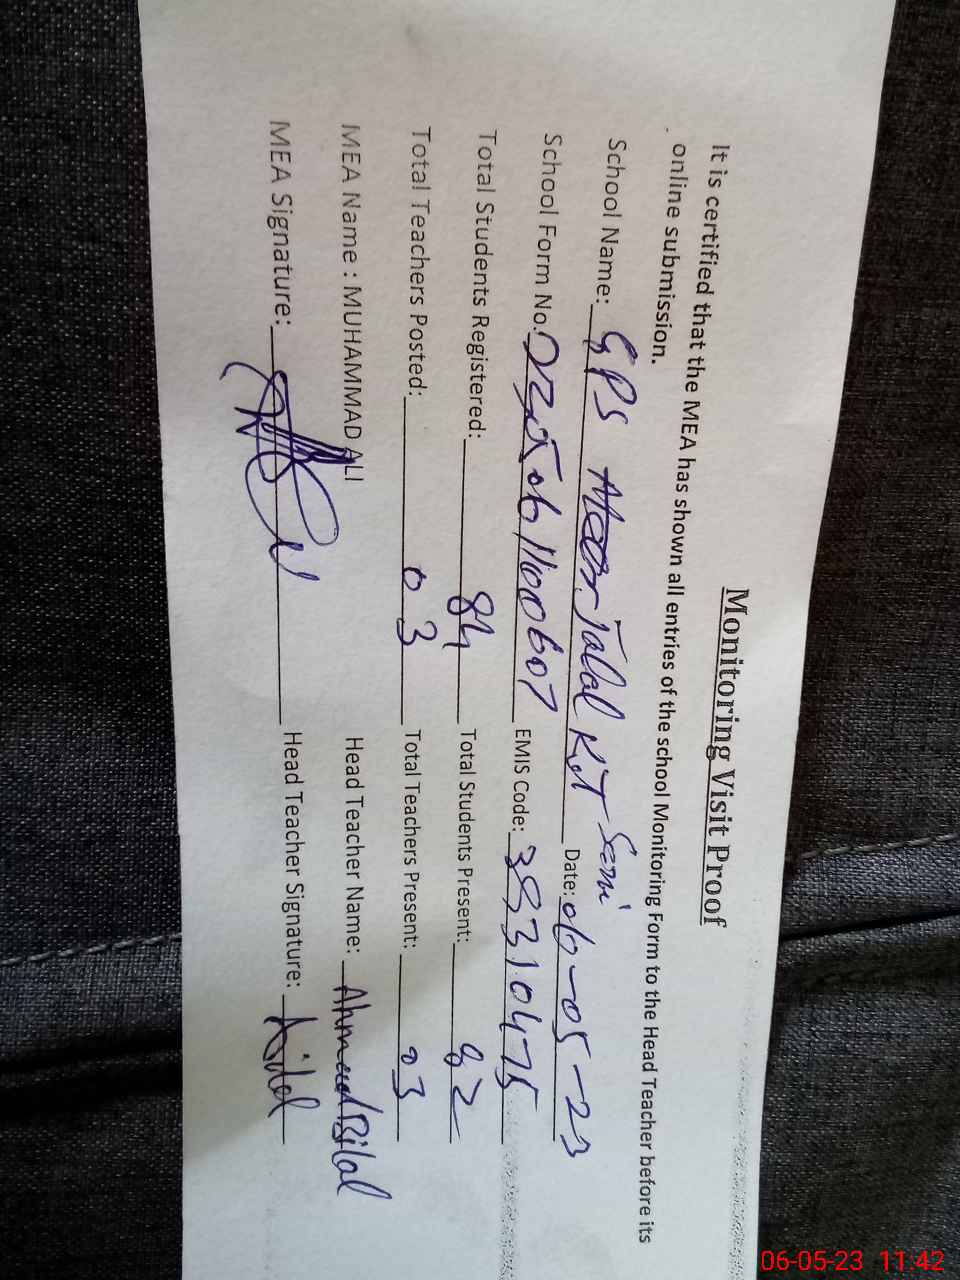 Monitoring Visit Proof
It is certified that the MEA has shown all entries of the school Monitoring Form to the Head Teacher before its
online submission.
School Name: GPS Jalal Kot Date: 06-05-23
School Form No: EMIS Code: 38310475
Total Students Registered: 84 Total Students Present: 82
Total Teachers Posted: 03 Total Teachers Present: 03
MEA Name : MUHAMMAD ALI Head Teacher Name: Ahmad Bilal
MEA Signature: Head Teacher Signature:
06-05-23 11:42